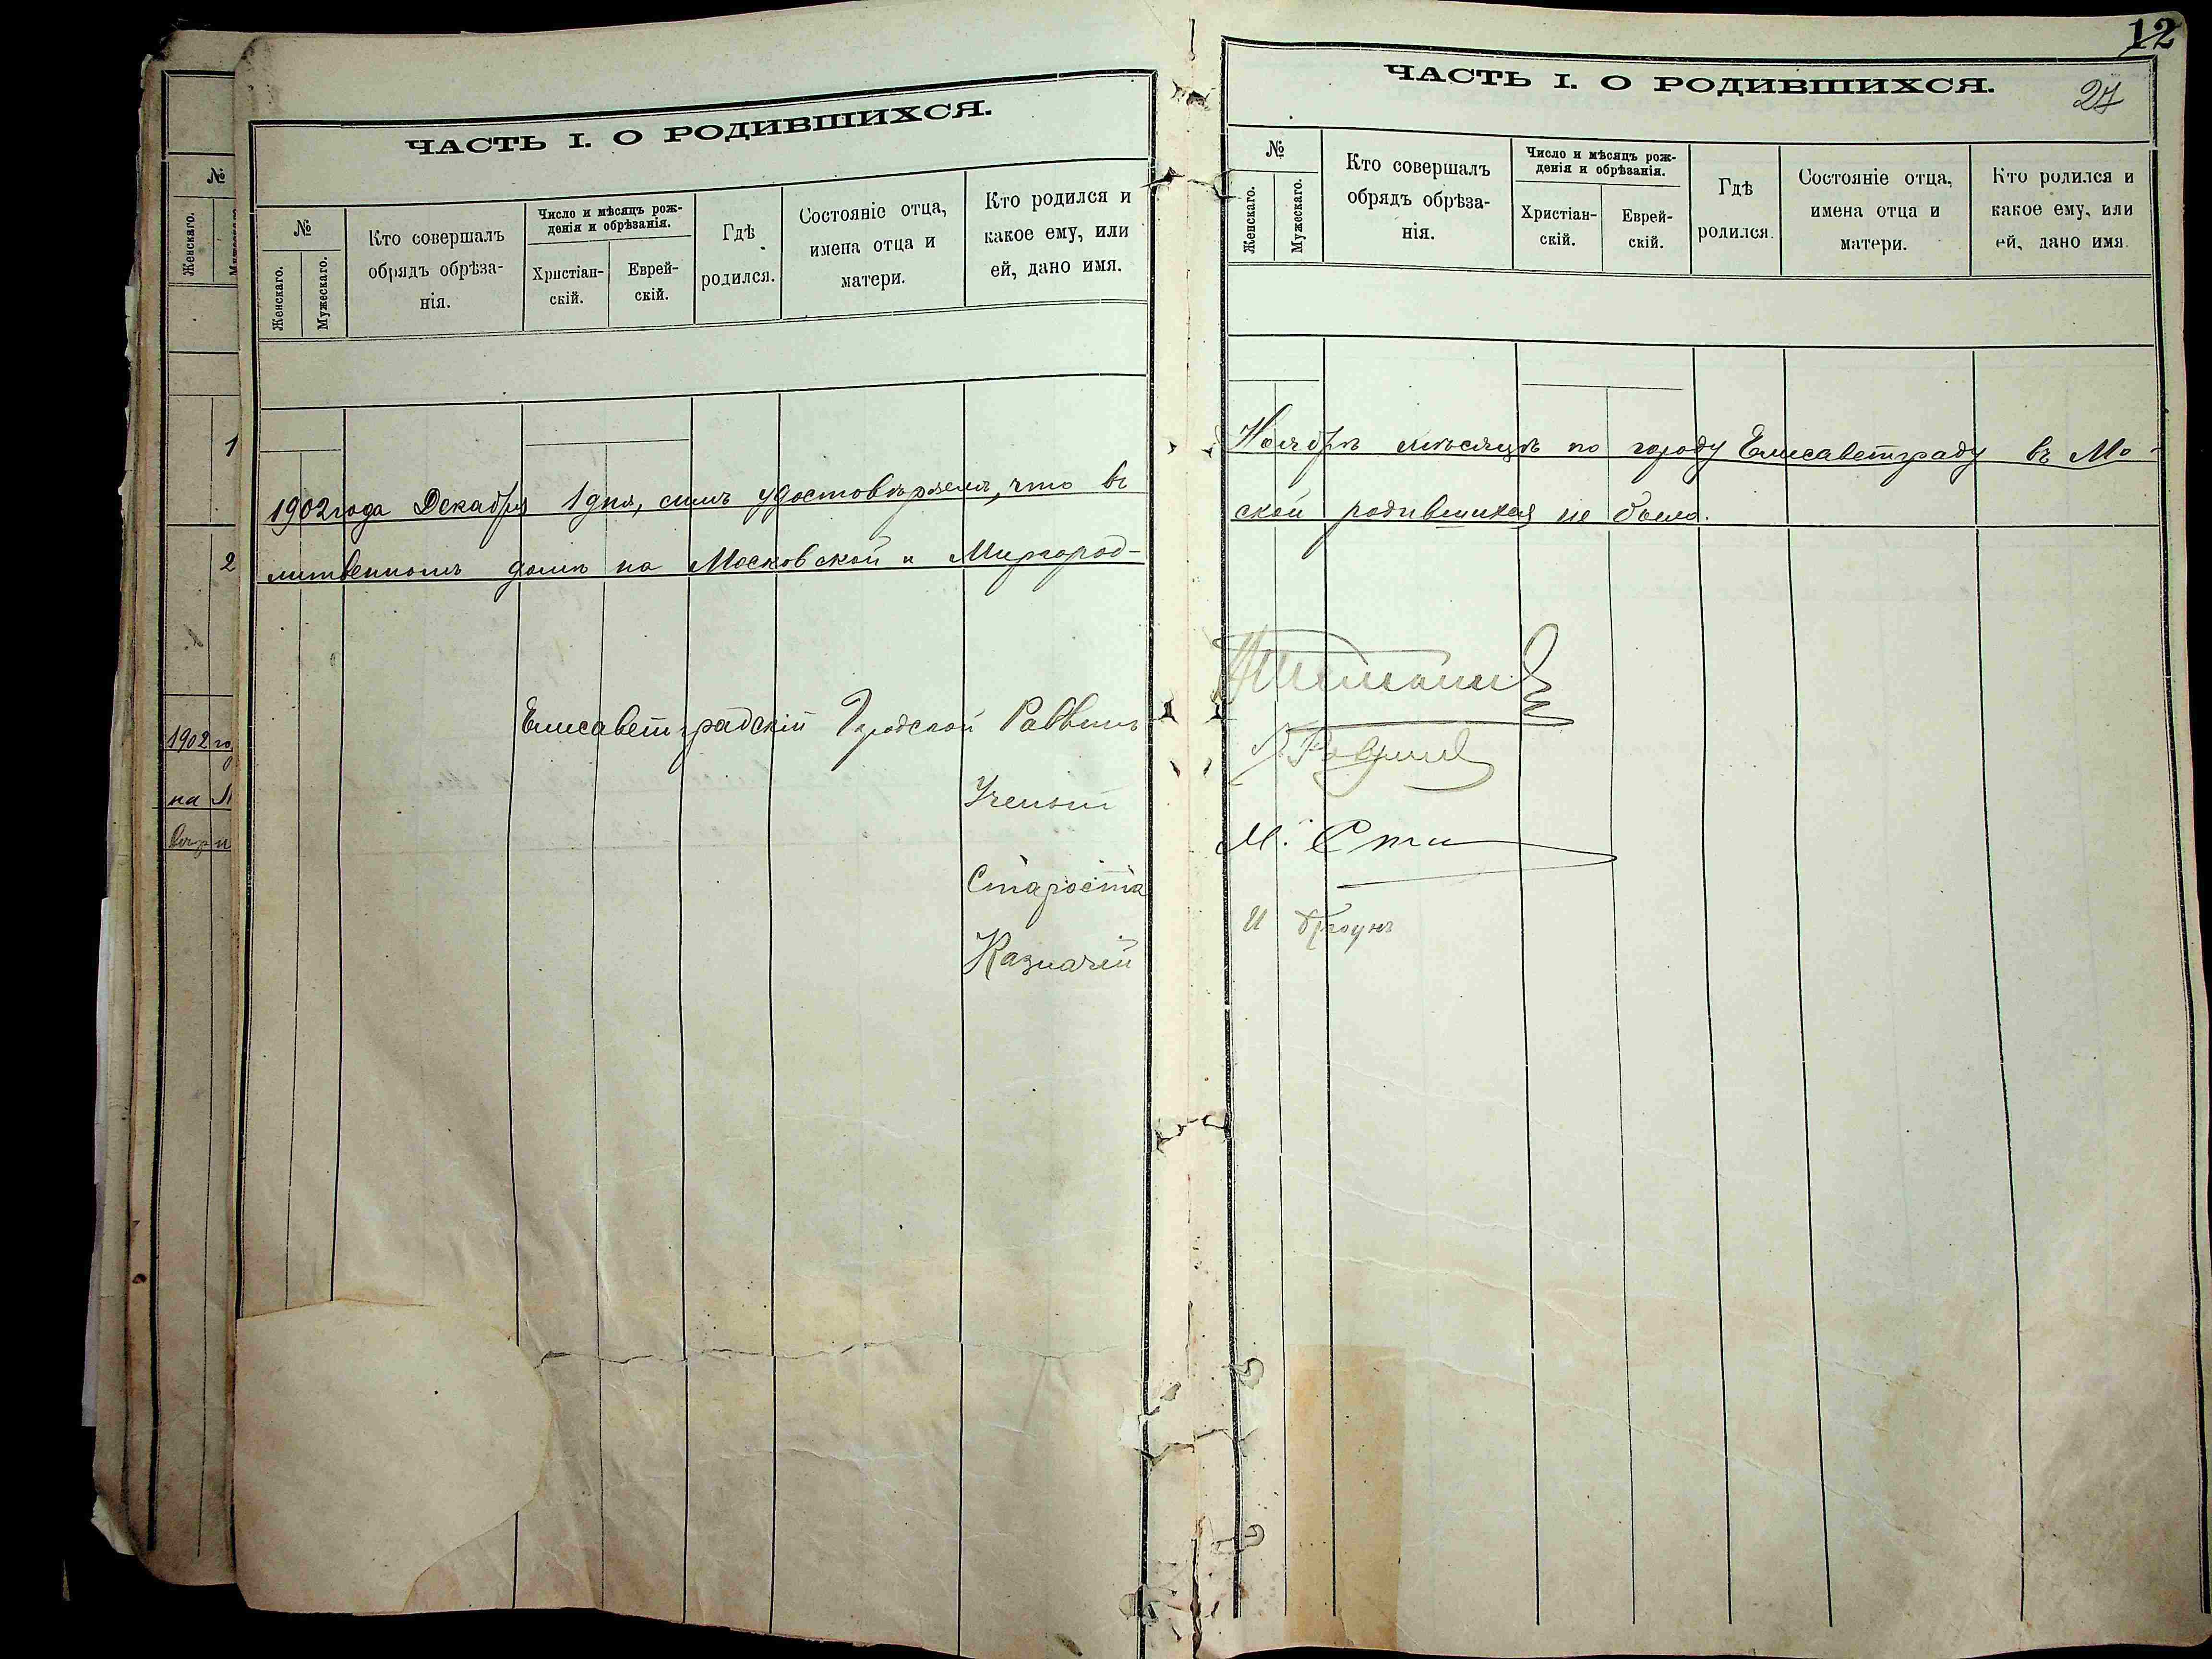 №
Женскаго.
1
2
1902 го
на М
ЧАСТЬ I. О РОДИВШИХСЯ.
№
Женскаго.
Мужескаго.
Кто совершалъ
обрядъ обрѣза-
нія.
Число и мѣсяцъ рож-
денія и обрѣзанія.
Христіан-
скій.
Еврей-
скій.
Гдѣ
родился.
Состояніе отца,
имена отца и
матери.
Кто родился и
какое ему, или
ей, дано имя.
1902 года Декабря 1 дня, симъ удостовѣряемъ, что въ
литвенномъ домѣ на Московской и Миргород-
Елисаветградскій Городской Раввинъ
Ученый
Староста
Казначей
12
27
ЧАСТЬ I. О РОДИВШИХСЯ.
№
Женскаго.
Мужескаго.
Кто совершалъ
обрядъ обрѣза-
нія.
Число и мѣсяцъ рож-
денія и обрѣзанія.
Христіан-
скій.
Еврей-
скій.
Гдѣ
родился.
Состояніе отца,
имена отца и
матери.
Кто родился и
какое ему, или
ей, дано имя.
Ноябрѣ мѣсяцѣ по городу Елисаветграду въ Мо-
ской родившихся не было.
М.
И